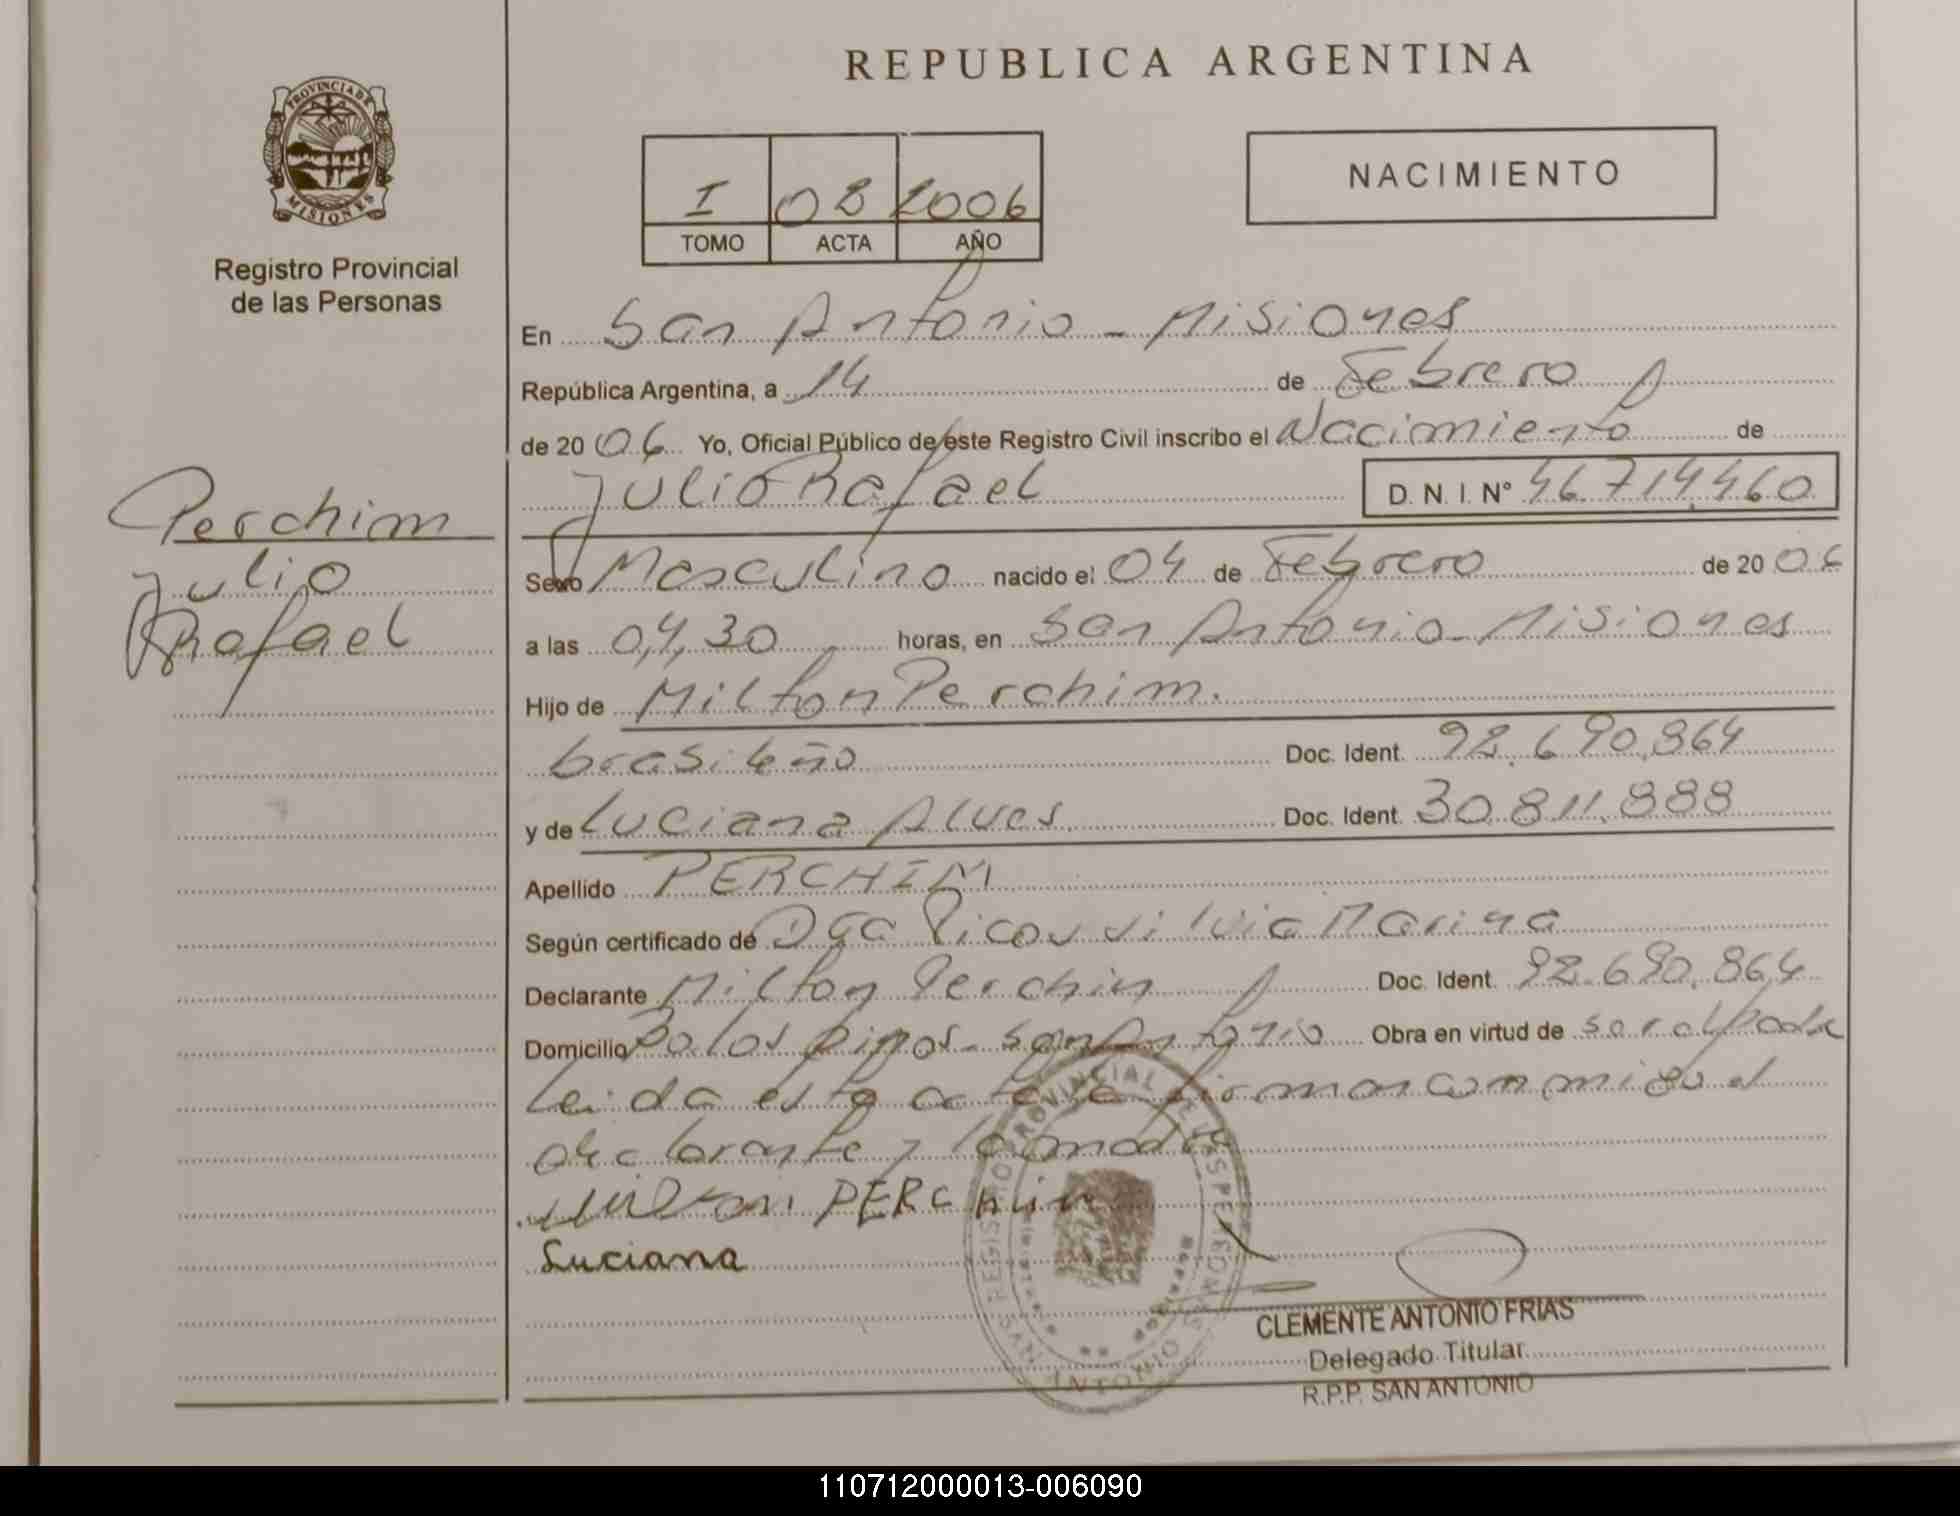 REPUBLICA ARGENTINA
PROVINCIA DE
MISIONES
Registro Provincial
de las Personas
I 08 2006
TOMO ACTA AÑO
NACIMIENTO
En San Antonio - Misiones
República Argentina, a 14 de Febrero
de 20 06 Yo, Oficial Público de este Registro Civil inscribo el Nacimiento de
Julio Rafael D. N. I. Nº 46.714.460
Perchim
Julio
Rafael
Sexo Masculino nacido el 04 de Febrero de 20 06
a las 04,30 horas, en San Antonio - Misiones
Hijo de Milton Perchim.
brasileño Doc. Ident. 92.690.864
y de Luciana Alves Doc. Ident. 30.811.888
Apellido PERCHIM
Según certificado de Silvia Marina
Declarante Milton Perchim Doc. Ident. 92.690.864
Domicilio Bo. los pinos - San Antonio Obra en virtud de ser el padre
Leida esta acta firman conmigo el
declarante y la madre
Milton PERCHIM
Luciana
REGISTRO PROVINCIAL DE LAS PERSONAS
SAN ANTONIO
CLEMENTE ANTONIO FRIAS
Delegado Titular
R.P.P. SAN ANTONIO
110712000013-006090